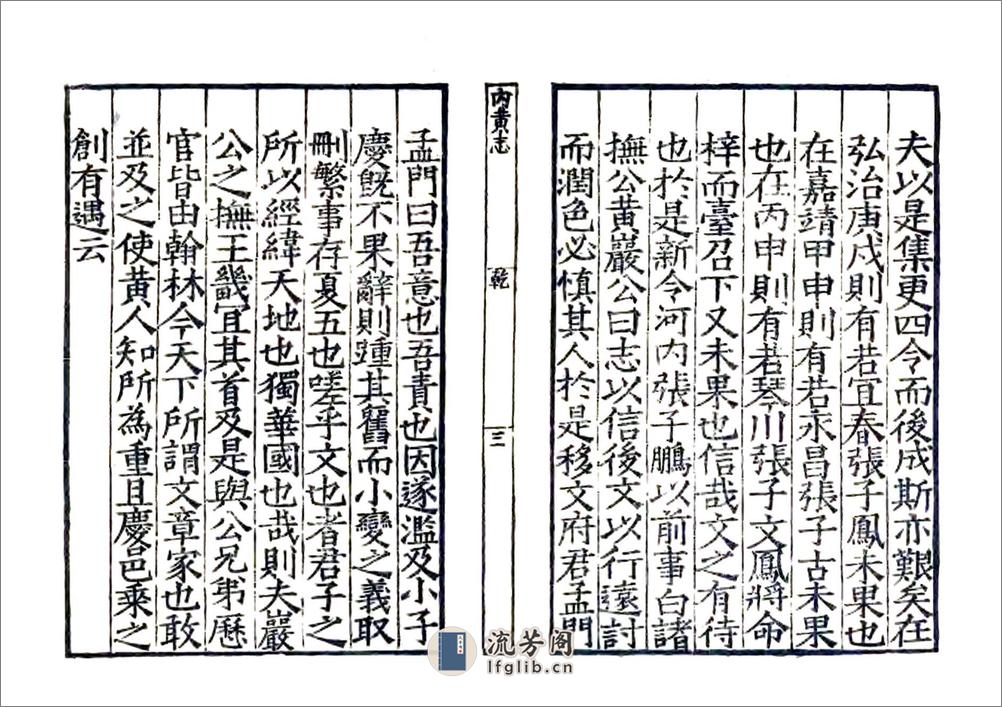 夫以是集更四令而後成斯亦艱矣在
弘治庚戍則有若宜春張子鳳未果也
在嘉靖甲申則有若永昌張子古未果
也在丙申則有若琴川張子文鳳將命
梓而臺召下又未果也信哉文之有待
也於是新令河内張子鵬以前事白諸
撫公黄巖公曰志以信後文以行遠討
而潤色必慎其人於是移文府君孟門
内黄志
乾
三
孟門曰吾意也吾責也因遂濫及小子
慶旣不果辭則踵其舊而小變之義取
刪繁事存夏五也嗟乎文也者君子之
所以經緯天地也獨華國也哉則夫巖
公之撫王畿宜其首及是與公兄弟歷
官皆由翰林今天下所謂文章家也敢
並及之使黄人知所為重且慶邑乘之
創有遇云
流芳阁
lfglib.cn